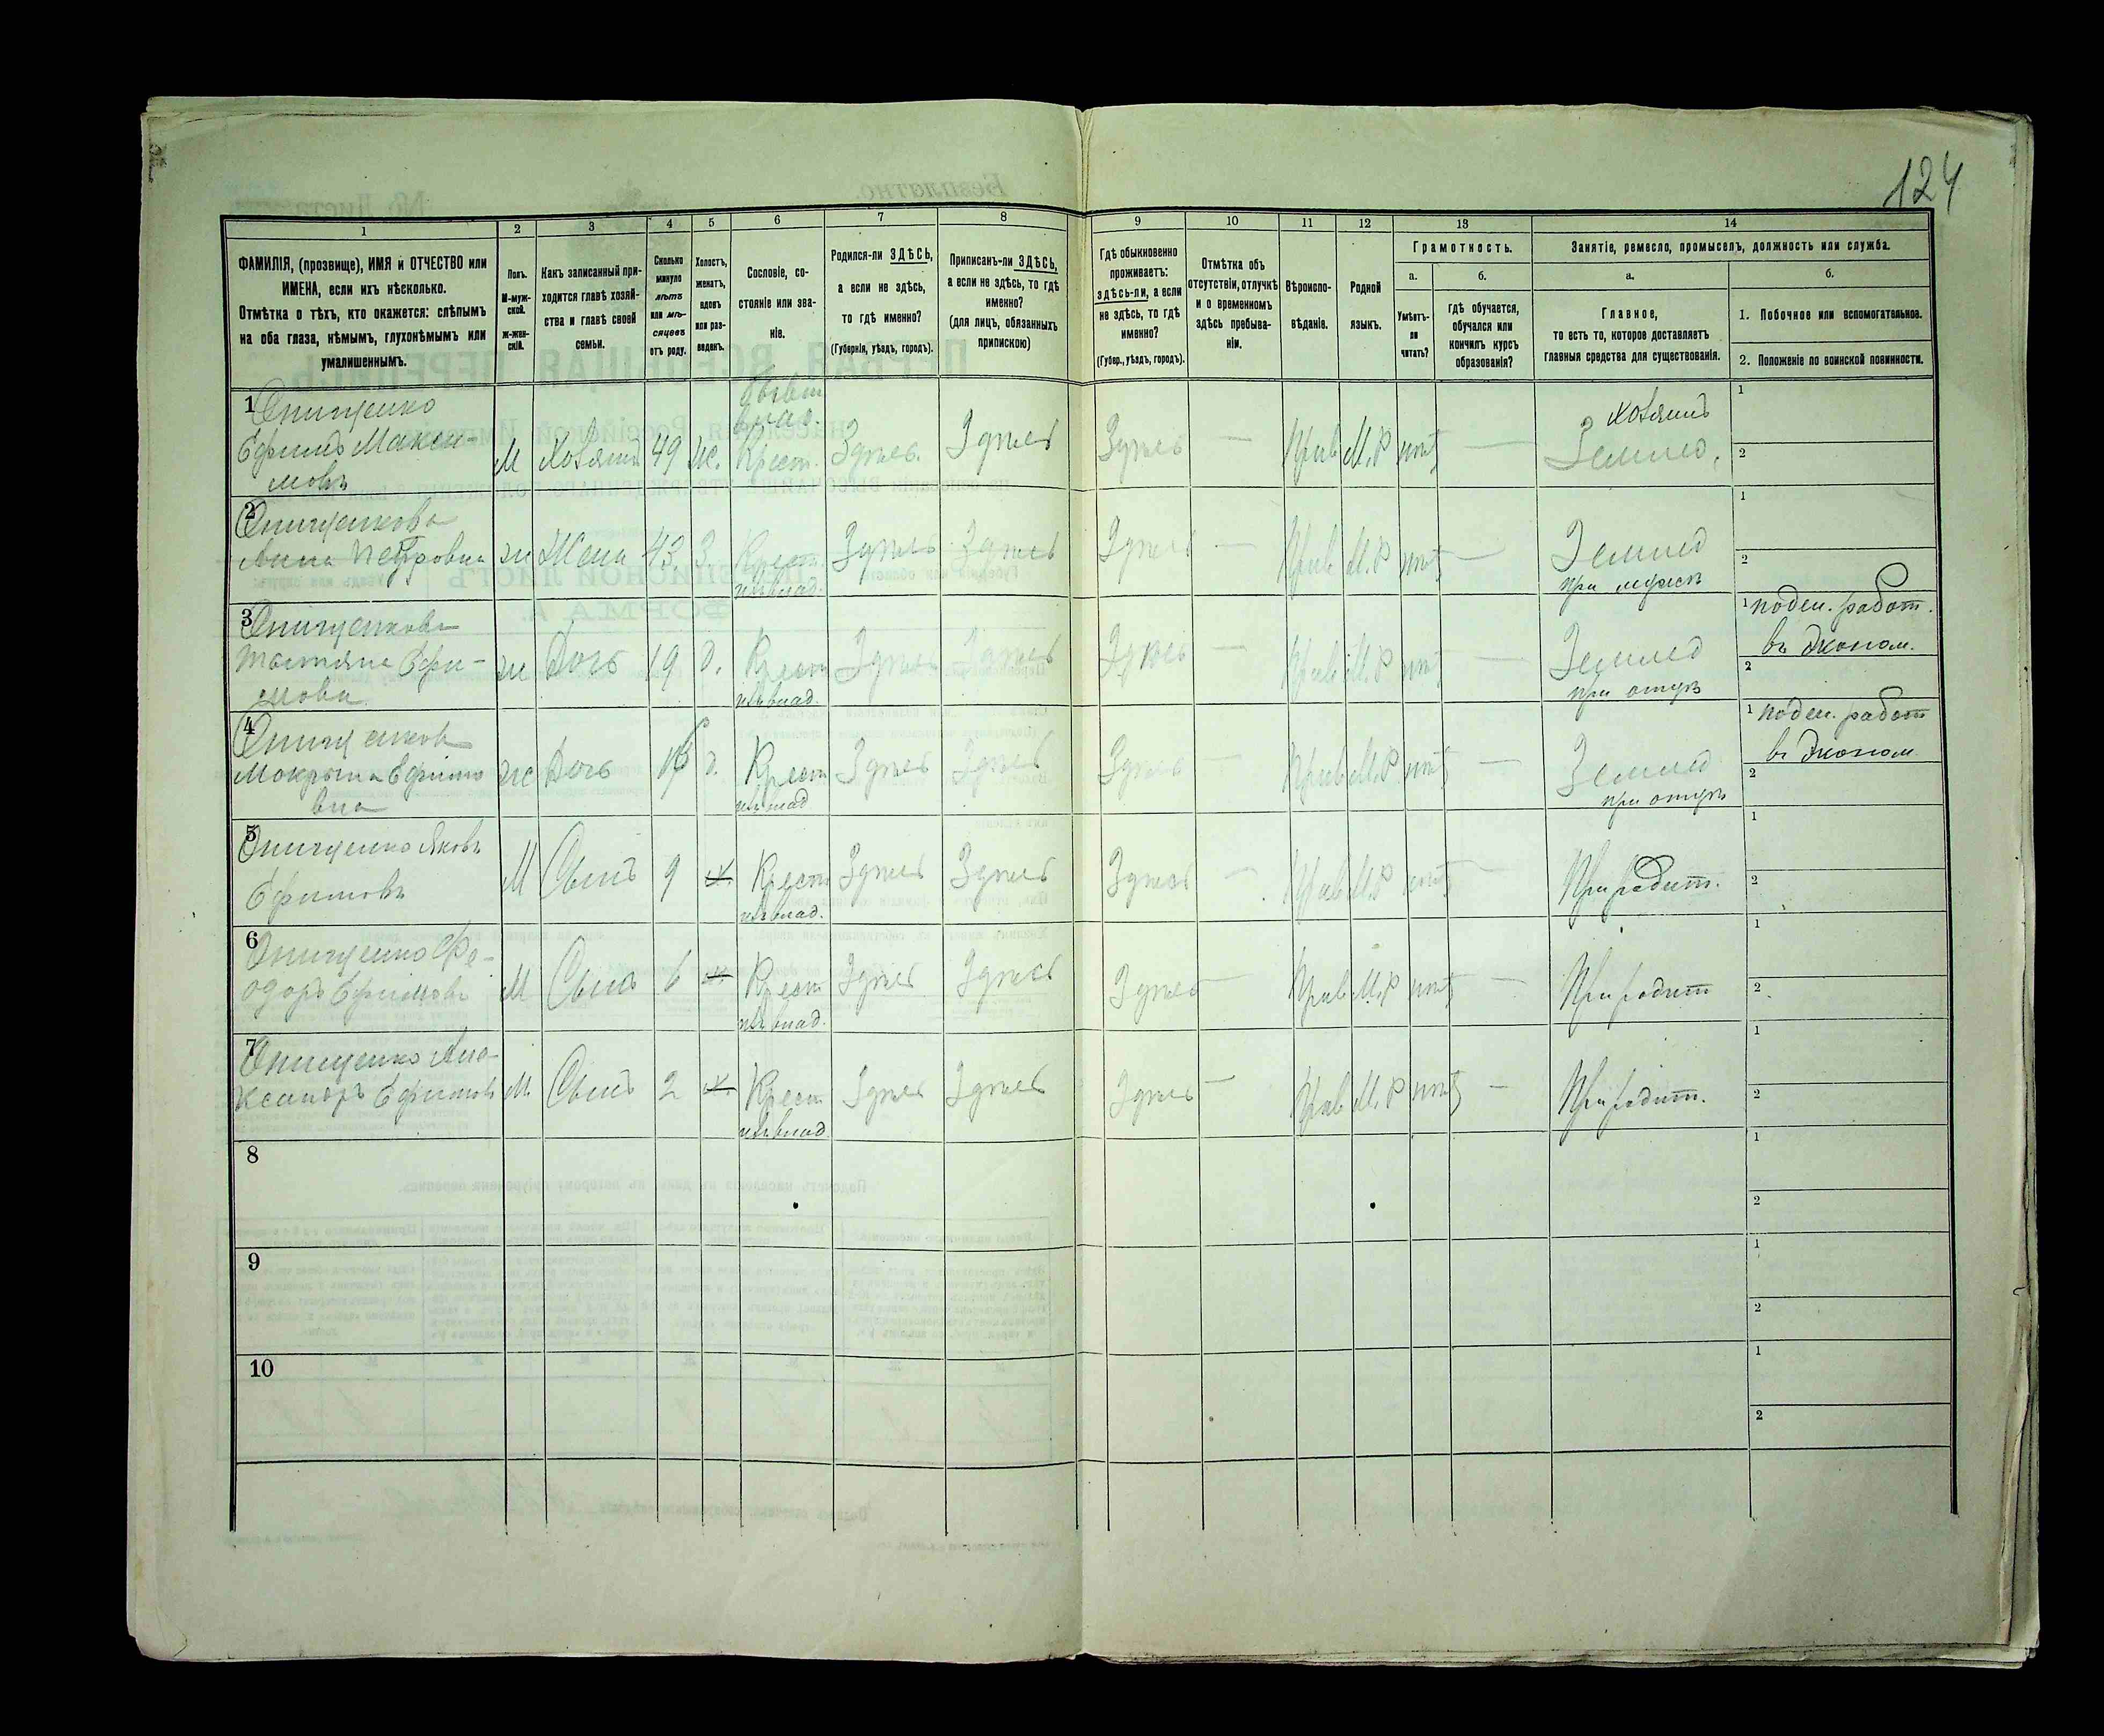 124
1 2 3 4 5 6 7 8 9 10 11 12 13 14
ФАМИЛІЯ, (прозвище), ИМЯ и ОТЧЕСТВО или
ИМЕНА, если ихъ нѣсколько.
Отмѣтка о тѣхъ, кто окажется: слѣпымъ
на оба глаза, нѣмымъ, глухонѣмымъ или
умалишеннымъ.
Полъ.
М-муж-
ской.
ж-жен-
скій.
Какъ записанный при-
ходится главѣ хозяй-
ства и главѣ своей
семьи.
Сколько
минуло
лѣтъ
или мѣ-
сяцевъ
отъ роду.
Холостъ,
женатъ,
вдовъ
или раз-
веденъ.
Сословіе, со-
стояніе или зва-
ніе.
Родился-ли ЗДѢСЬ,
а если не здѣсь,
то гдѣ именно?
(Губернія, уѣздъ, городъ).
Приписанъ-ли ЗДѢСЬ,
а если не здѣсь, то гдѣ
именно?
(для лицъ, обязанныхъ
припискою)
Гдѣ обыкновенно
проживаетъ:
здѣсь-ли, а если
не здѣсь, то гдѣ
именно?
(Губер., уѣздъ, городъ).
Отмѣтка объ
отсутствіи, отлучкѣ
и о временномъ
здѣсь пребыва-
ніи.
Вѣроиспо-
вѣданіе.
Родной
языкъ.
Грамотность.
а.
Умѣетъ-
ли
читать?
б.
гдѣ обучается,
обучался или
кончилъ курсъ
образованія?
Занятіе, ремесло, промыселъ, должность или служба.
а.
Главное,
то есть то, которое доставляетъ
главныя средства для существованія.
б.
1. Побочное или вспомогательное.
2. Положеніе по воинской повинности.
1 Онищенко
Ефимъ Макси-
мовъ
М Хозяинъ 49 ж. Крест. Здѣсь. Здѣсь Здѣсь — Прав М.Р нѣтъ — Хозяинъ
Землед.
1
2
2 Онищенкова
Анна Петровна ж Жена 43. З. Крест. Здѣсь Здѣсь Здѣсь — Прав М.Р нѣтъ — Землед
при мужѣ
1
2
3 Онищенкова
Татьяна Ефи-
мова ж Дочь 19 д. Крест Здѣсь Здѣсь Здѣсь — Прав М.Р нѣтъ — Землед
при отцѣ
1 поден. работ.
въ Эконом.
2
4 Онищенкова
Мокрына Ефимо
вна ж Дочь д. Крест Здѣсь Здѣсь Здѣсь — Прав М.Р нѣтъ — Землед
при отцѣ
1 поден. работ
въ Эконом
2
5 Онищенко Яковъ
Ефимовъ М Сынъ 9 Х. Крест Здѣсь Здѣсь Здѣсь — Прав М.Р нѣтъ — При родит.
1
2
6 Онищенко Фе-
одоръ Ефимовъ М Сынъ 6 Х. Крест Здѣсь Здѣсь Здѣсь — Прав М.Р нѣтъ — При родит
1
2
7 Онищенко Але-
ксандръ Ефимовъ М. Сынъ 2 Х. Крест Здѣсь Здѣсь Здѣсь — Прав М.Р нѣтъ — При родит.
1
2
8
1
2
9
1
2
10
1
2